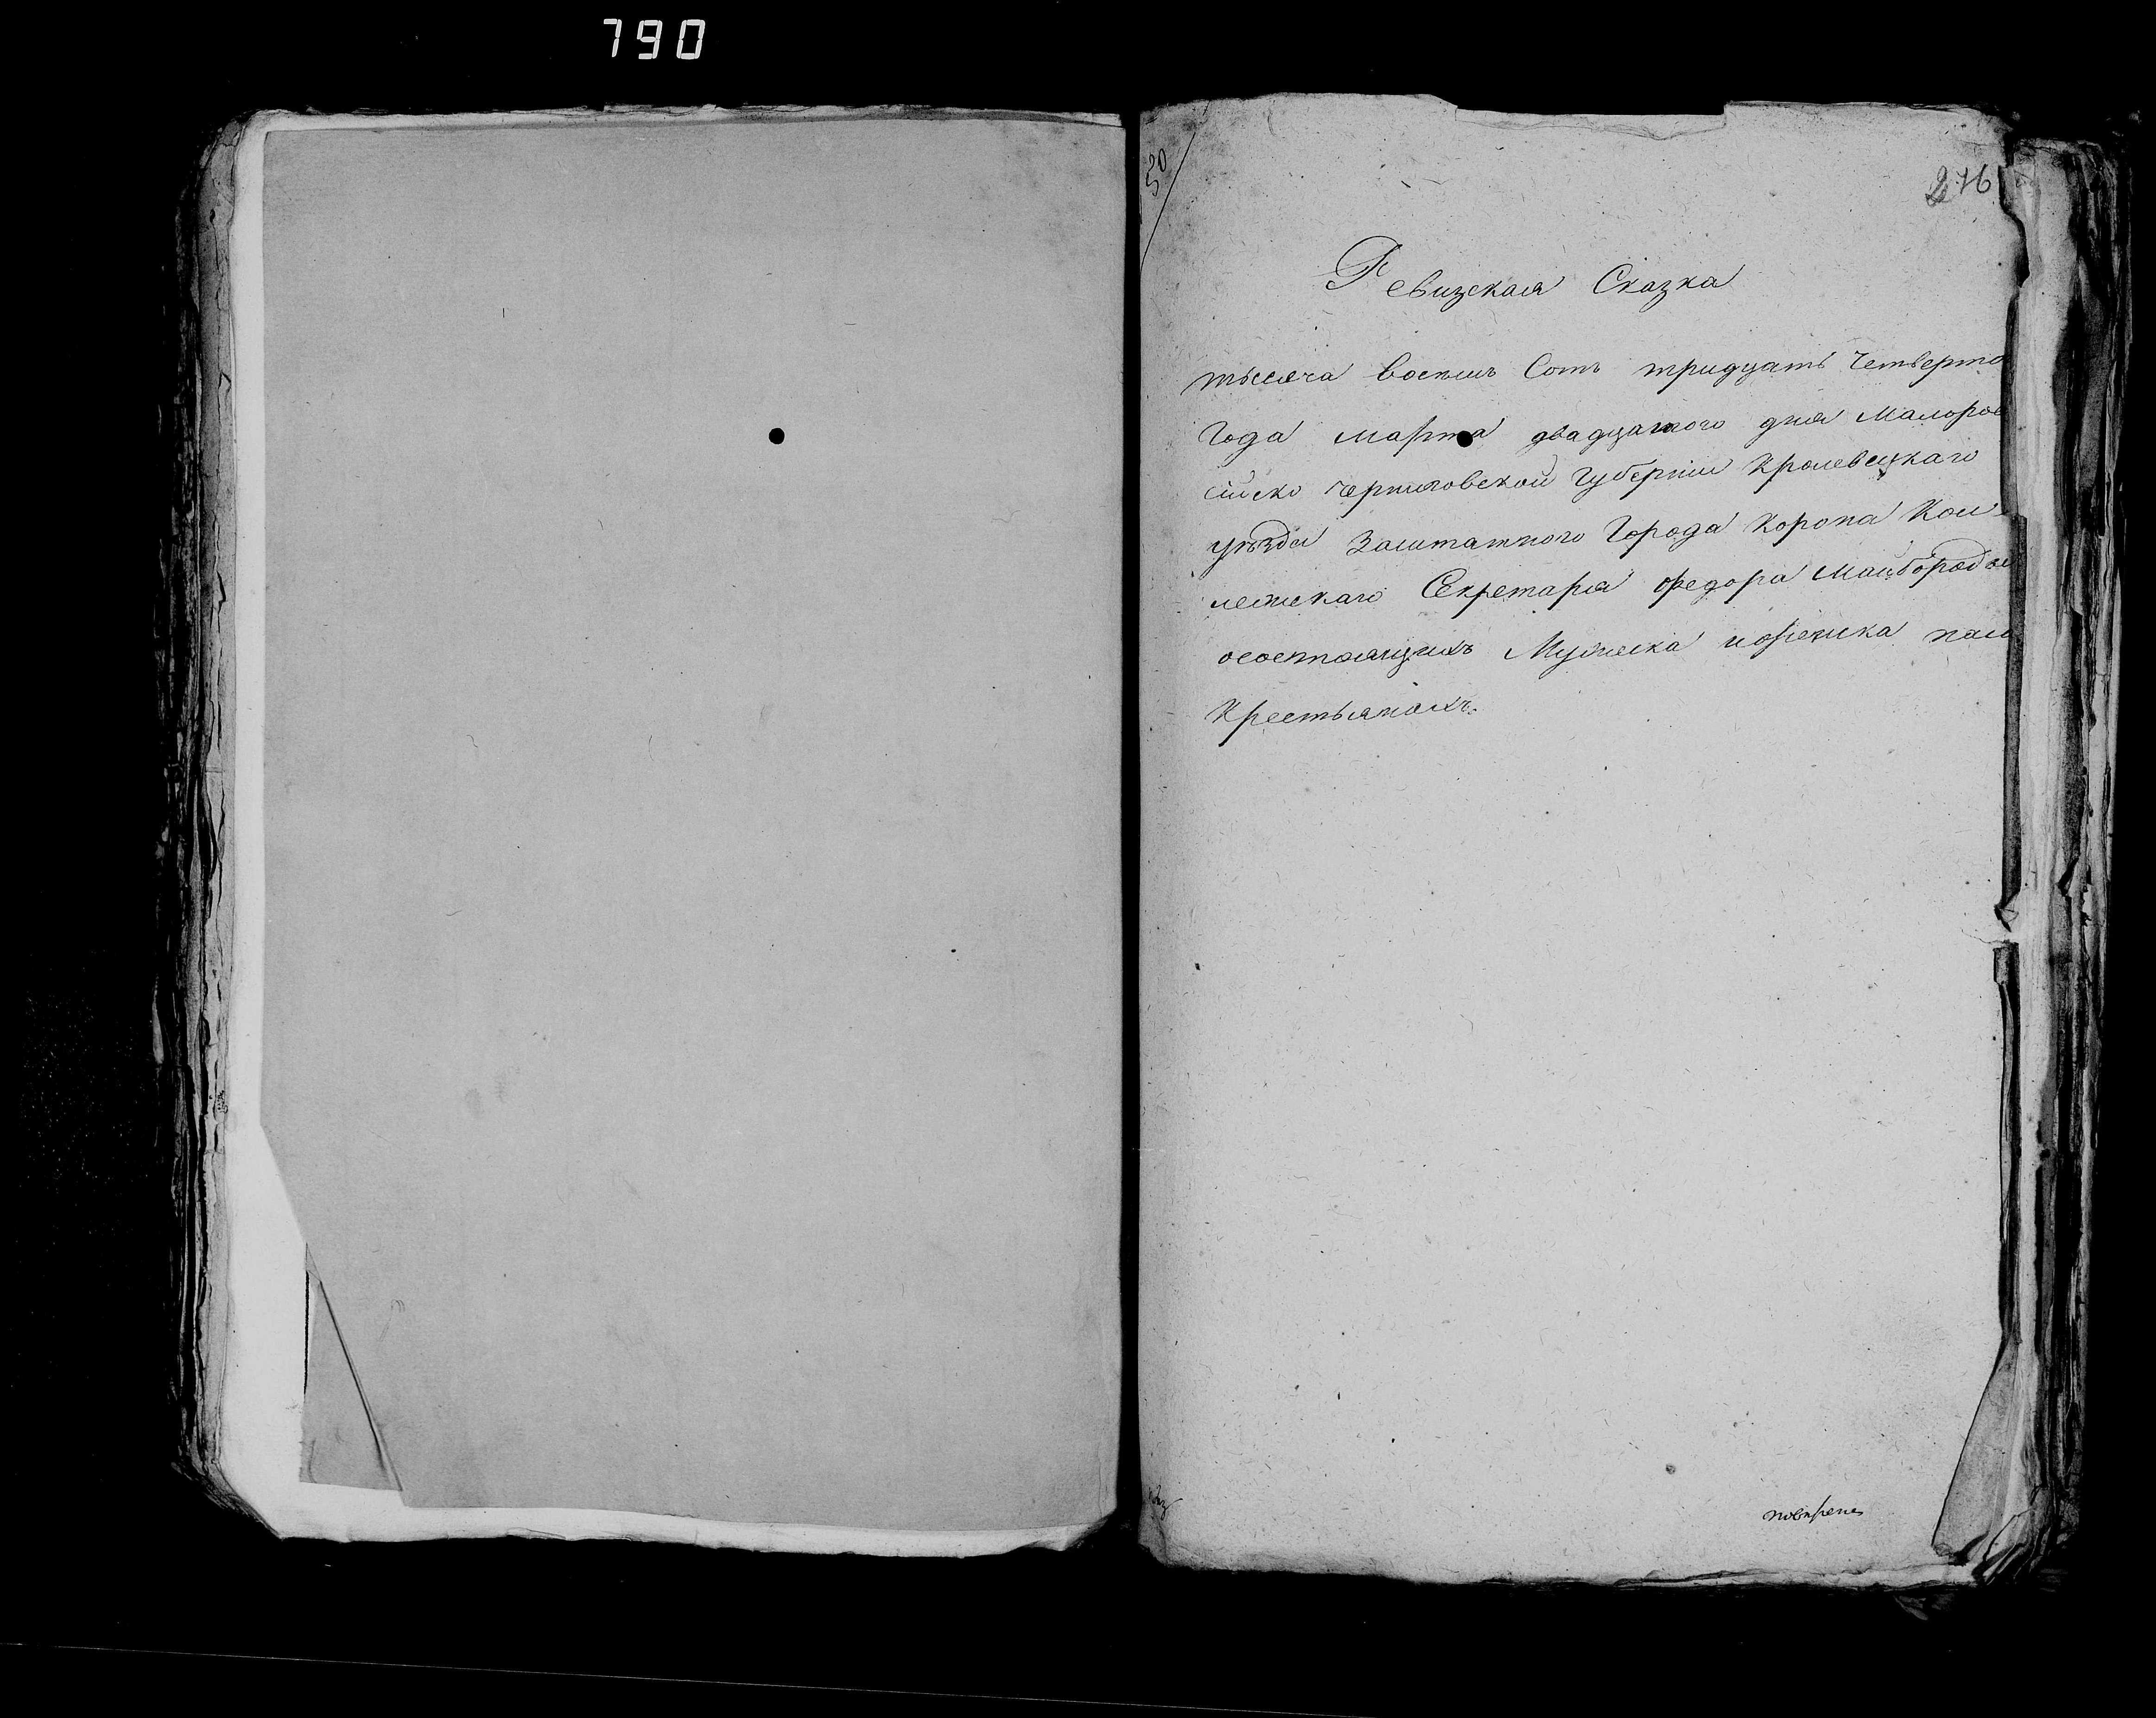 790
50
216
Ревизская Сказка
тысяча восемь Сотъ тридцать Четверто
Года марта двадцатого дня Малорос
сійско Черниговской Губерніи Кролевецкаго
уезда Заштатного Города Коропа Кол
лежскаго Секретаря Федора Майбороды
осостоящихъ Мужеска иоженска пала
Крестьянахъ.